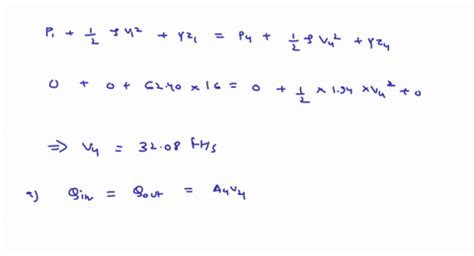 P₁ + 1/2 ρ V₁² + γz₁ = P₄ + 1/2 ρ V₄² + γz₄
0 + 0 + 62.40 × 16 = 0 + 1/2 × 1.94 × V₄² + 0
⇒ V₄ = 32.08 ft/s
a) Qin = Qout = A₄V₄